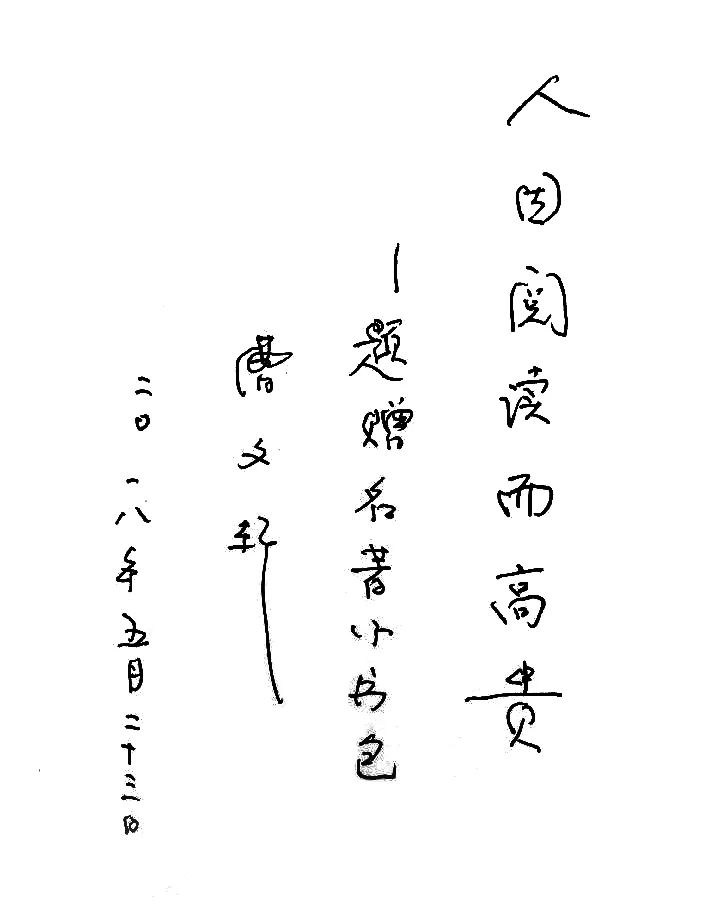 人因阅读而高贵
—题赠名著小书包
曹文轩
二〇一八年五月二十三日